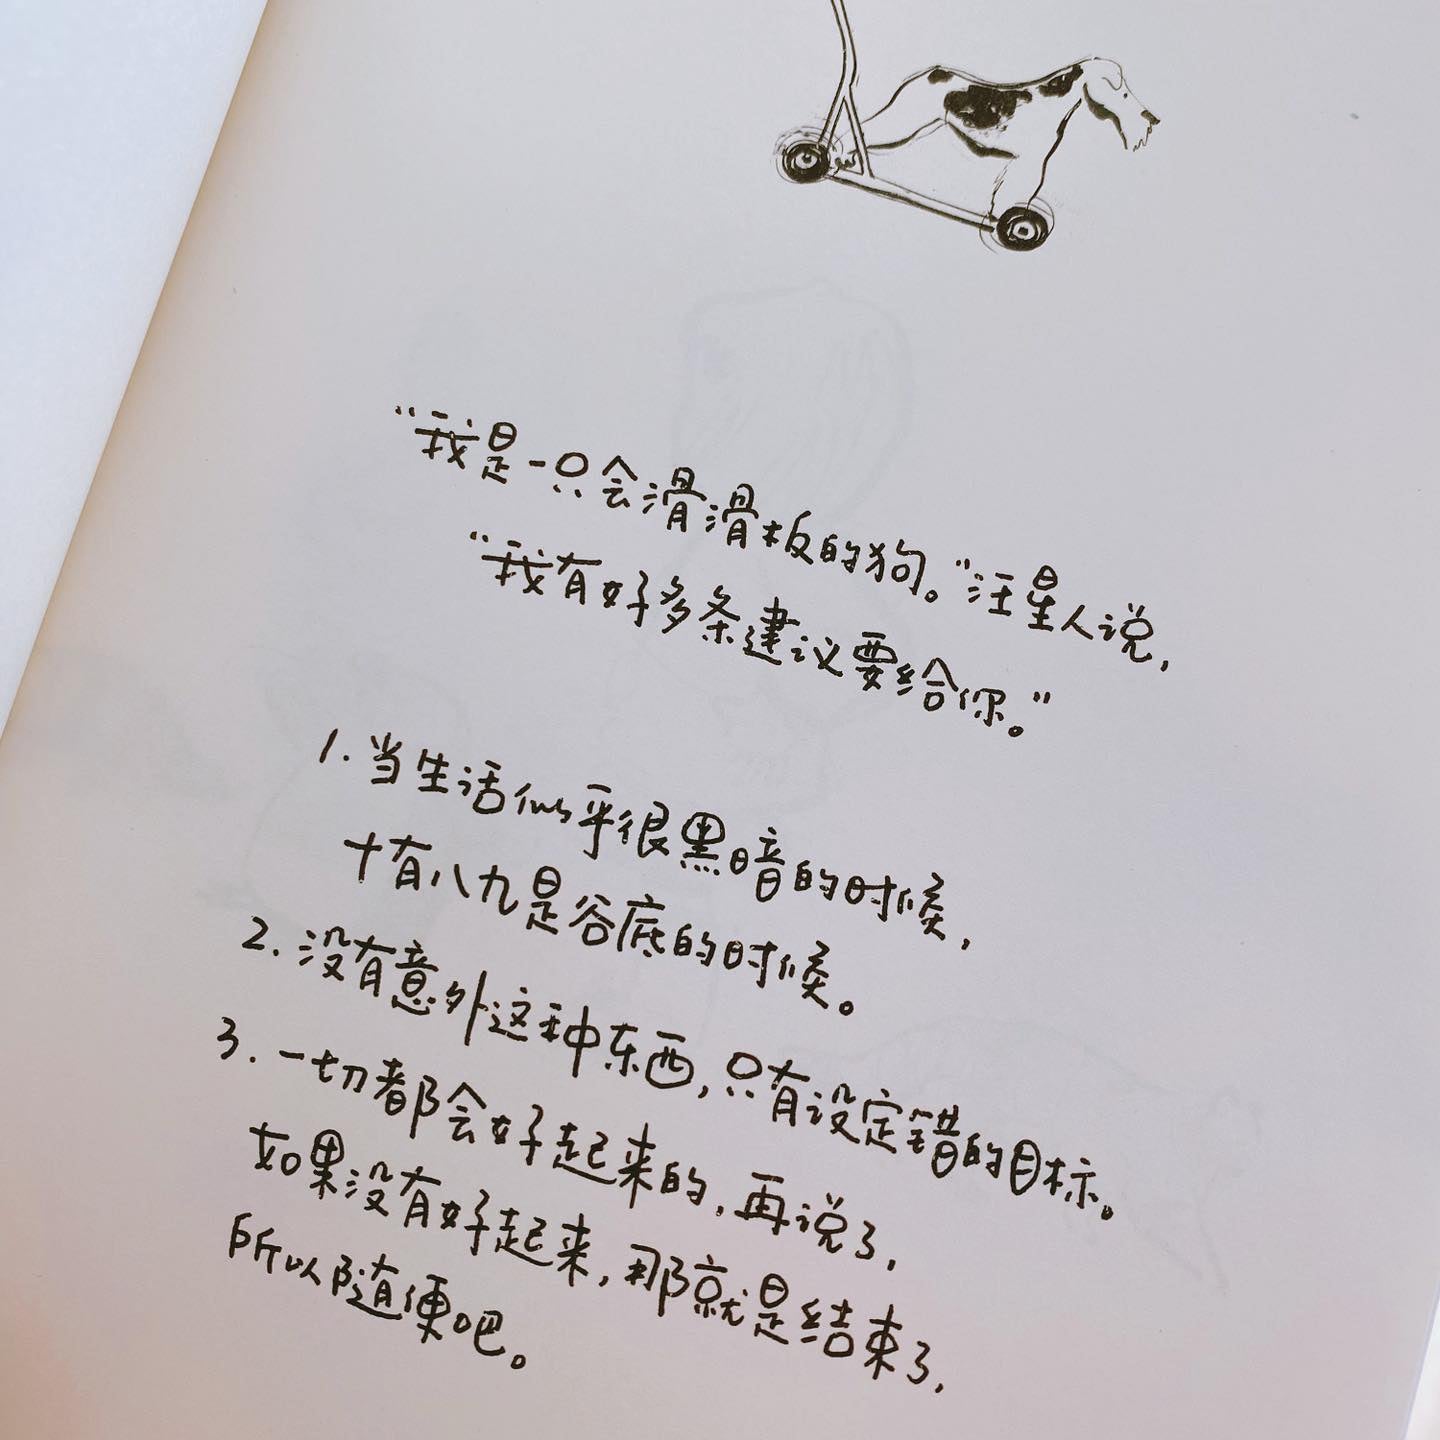 “我是一只会滑滑板的狗。”汪星人说，
“我有好多条建议要给你。”
1.当生活似乎很黑暗的时候，
十有八九是谷底的时候。
2.没有意外这种东西，只有设定错的目标。
3.一切都会好起来的，再说了，
如果没有好起来，那就是结束了，
所以随便吧。